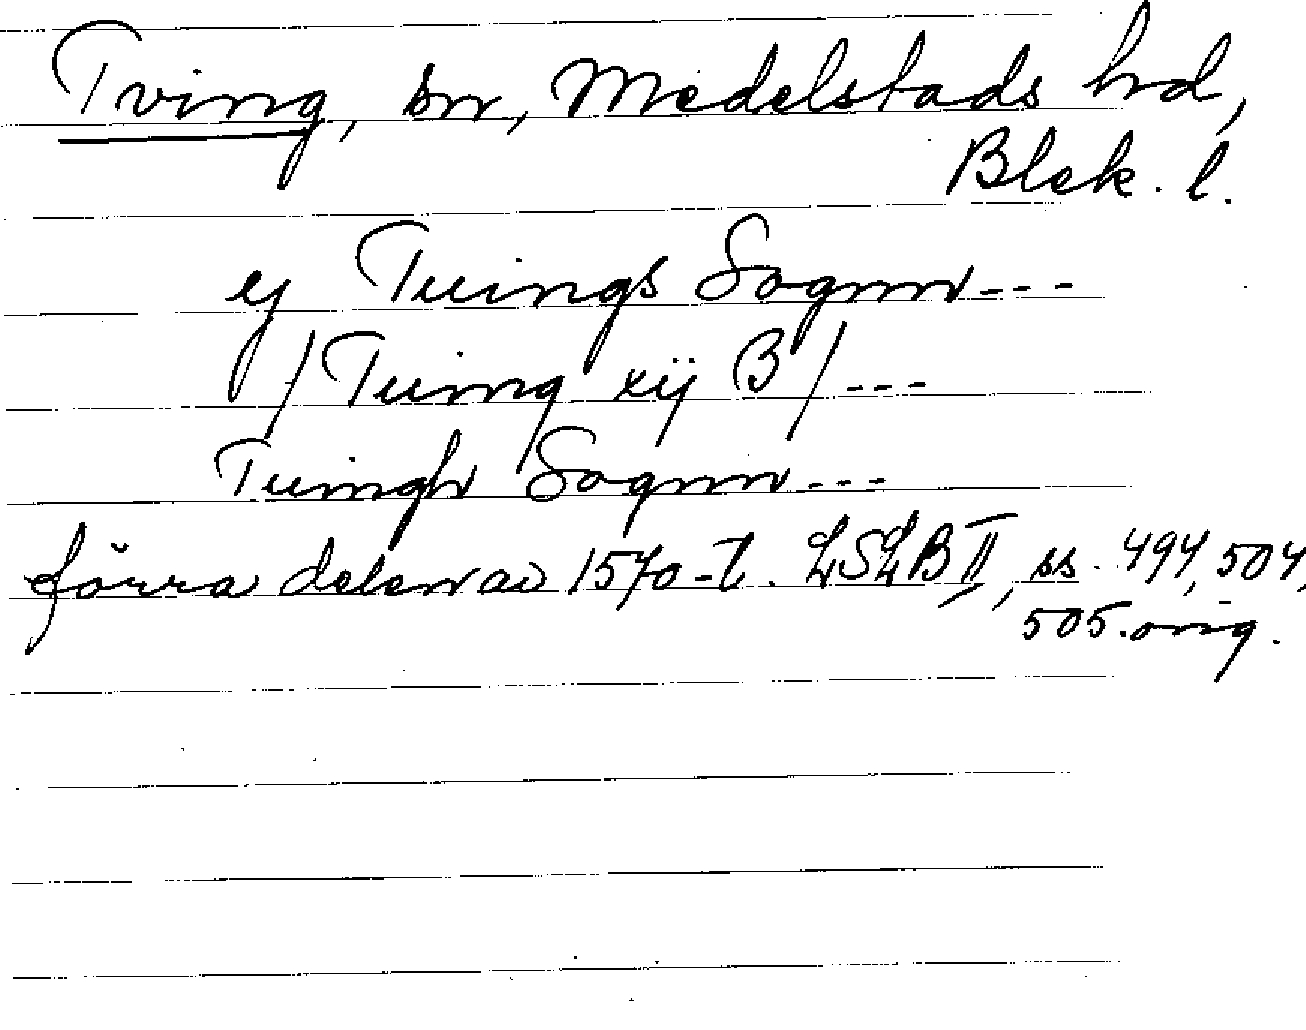 Tving, sn, Medelstads hd,
Blek. l.
ej Tuings Sognn---
/Tuing xij B/---
Tuingh Sognn---
förra delen av 1570-t. LSLB II, ss. 494, 504,
505. orig.